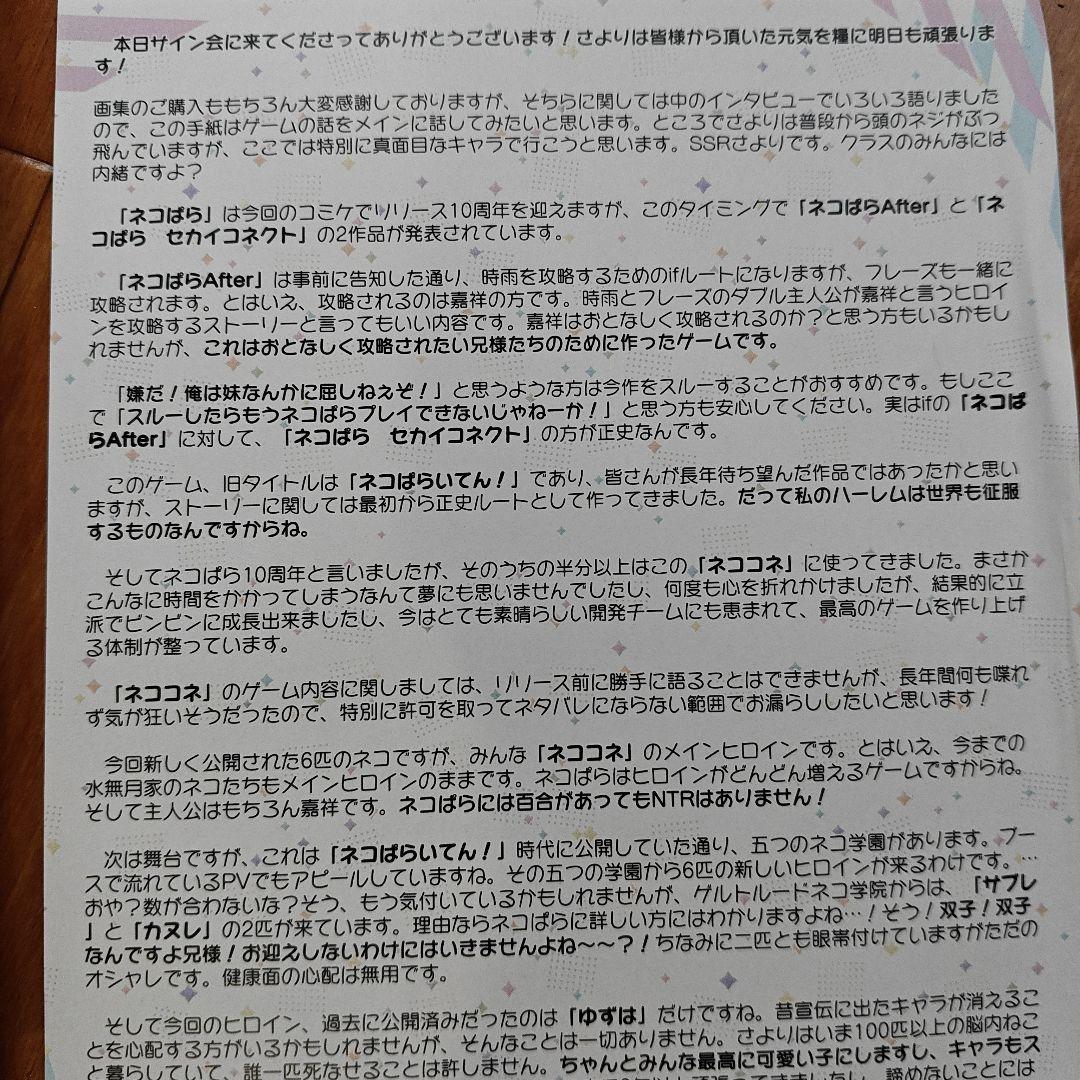 本日サイン会に来てくださってありがとうございます！さよりは皆様から頂いた元気を糧に明日も頑張りま
す！
画集のご購入ももちろん大変感謝しておりますが、そちらに関しては中のインタビューでいろいろ語りました
ので、この手紙はゲームの話をメインに話してみたいと思います。ところでさよりは普段から頭のネジがぶっ
飛んでいますが、ここでは特別に真面目なキャラで行こうと思います。SSRさよりです。クラスのみんなには
内緒ですよ？
「ネコぱら」は今回のコミケでリリース10周年を迎えますが、このタイミングで「ネコぱらAfter」と「ネ
コぱら　セカイコネクト」の2作品が発表されています。
「ネコぱらAfter」は事前に告知した通り、時雨を攻略するためのifルートになりますが、フレーズも一緒に
攻略されます。とはいえ、攻略されるのは嘉祥の方です。時雨とフレーズのダブル主人公が嘉祥と言うヒロイ
ンを攻略するストーリーと言ってもいい内容です。嘉祥はおとなしく攻略されるのか？と思う方もいるかもし
れませんが、これはおとなしく攻略されたい兄様たちのために作ったゲームです。
「嫌だ！俺は妹なんかに屈しねぇぞ！」と思うような方は今作をスルーすることがおすすめです。もしここ
で「スルーしたらもうネコぱらプレイできないじゃねーか！」と思う方も安心してください。実はifの「ネコぱ
らAfter」に対して、「ネコぱら　セカイコネクト」の方が正史なんです。
このゲーム、旧タイトルは「ネコぱらいてん！」であり、皆さんが長年待ち望んだ作品ではあったかと思い
ますが、ストーリーに関しては最初から正史ルートとして作ってきました。だって私のハーレムは世界も征服
するものなんですからね。
そしてネコぱら10周年と言いましたが、そのうちの半分以上はこの「ネココネ」に使ってきました。まさか
こんなに時間をかかってしまうなんて夢にも思いませんでしたし、何度も心を折れかけましたが、結果的に立
派でビンビンに成長出来ましたし、今はとても素晴らしい開発チームにも恵まれて、最高のゲームを作り上げ
る体制が整っています。
「ネココネ」のゲーム内容に関しましては、リリース前に勝手に語ることはできませんが、長年間何も喋れ
ず気が狂いそうだったので、特別に許可を取ってネタバレにならない範囲でお漏らししたいと思います！
今回新しく公開された6匹のネコですが、みんな「ネココネ」のメインヒロインです。とはいえ、今までの
水無月家のネコたちもメインヒロインのままです。ネコぱらはヒロインがどんどん増えるゲームですからね。
そして主人公はもちろん嘉祥です。ネコぱらには百合があってもNTRはありません！
次は舞台ですが、これは「ネコぱらいてん！」時代に公開していた通り、五つのネコ学園があります。ブー
スで流れているPVでもアピールしていますね。その五つの学園から6匹の新しいヒロインが来るわけです。…
おや？数が合わないな？そう、もう気付いているかもしれませんが、ゲルトルードネコ学院からは、「サブレ
」と「カヌレ」の2匹が来ています。理由ならネコぱらに詳しい方にはわかりますよね…！そう！双子！双子
なんですよ兄様！お迎えしないわけにはいきませんよね～～？！ちなみに二匹とも眼帯付けていますがただの
オシャレです。健康面の心配は無用です。
そして今回のヒロイン、過去に公開済みだったのは「ゆずは」だけですね。昔宣伝に出たキャラが消えるこ
とを心配する方がいるかもしれませんが、そんなことは一切ありません。さよりはいま100匹以上の脳内ねこ
と暮らしていて、誰一匹死なせることは許しません。ちゃんとみんな最高に可愛い子にしますし、キャラもス